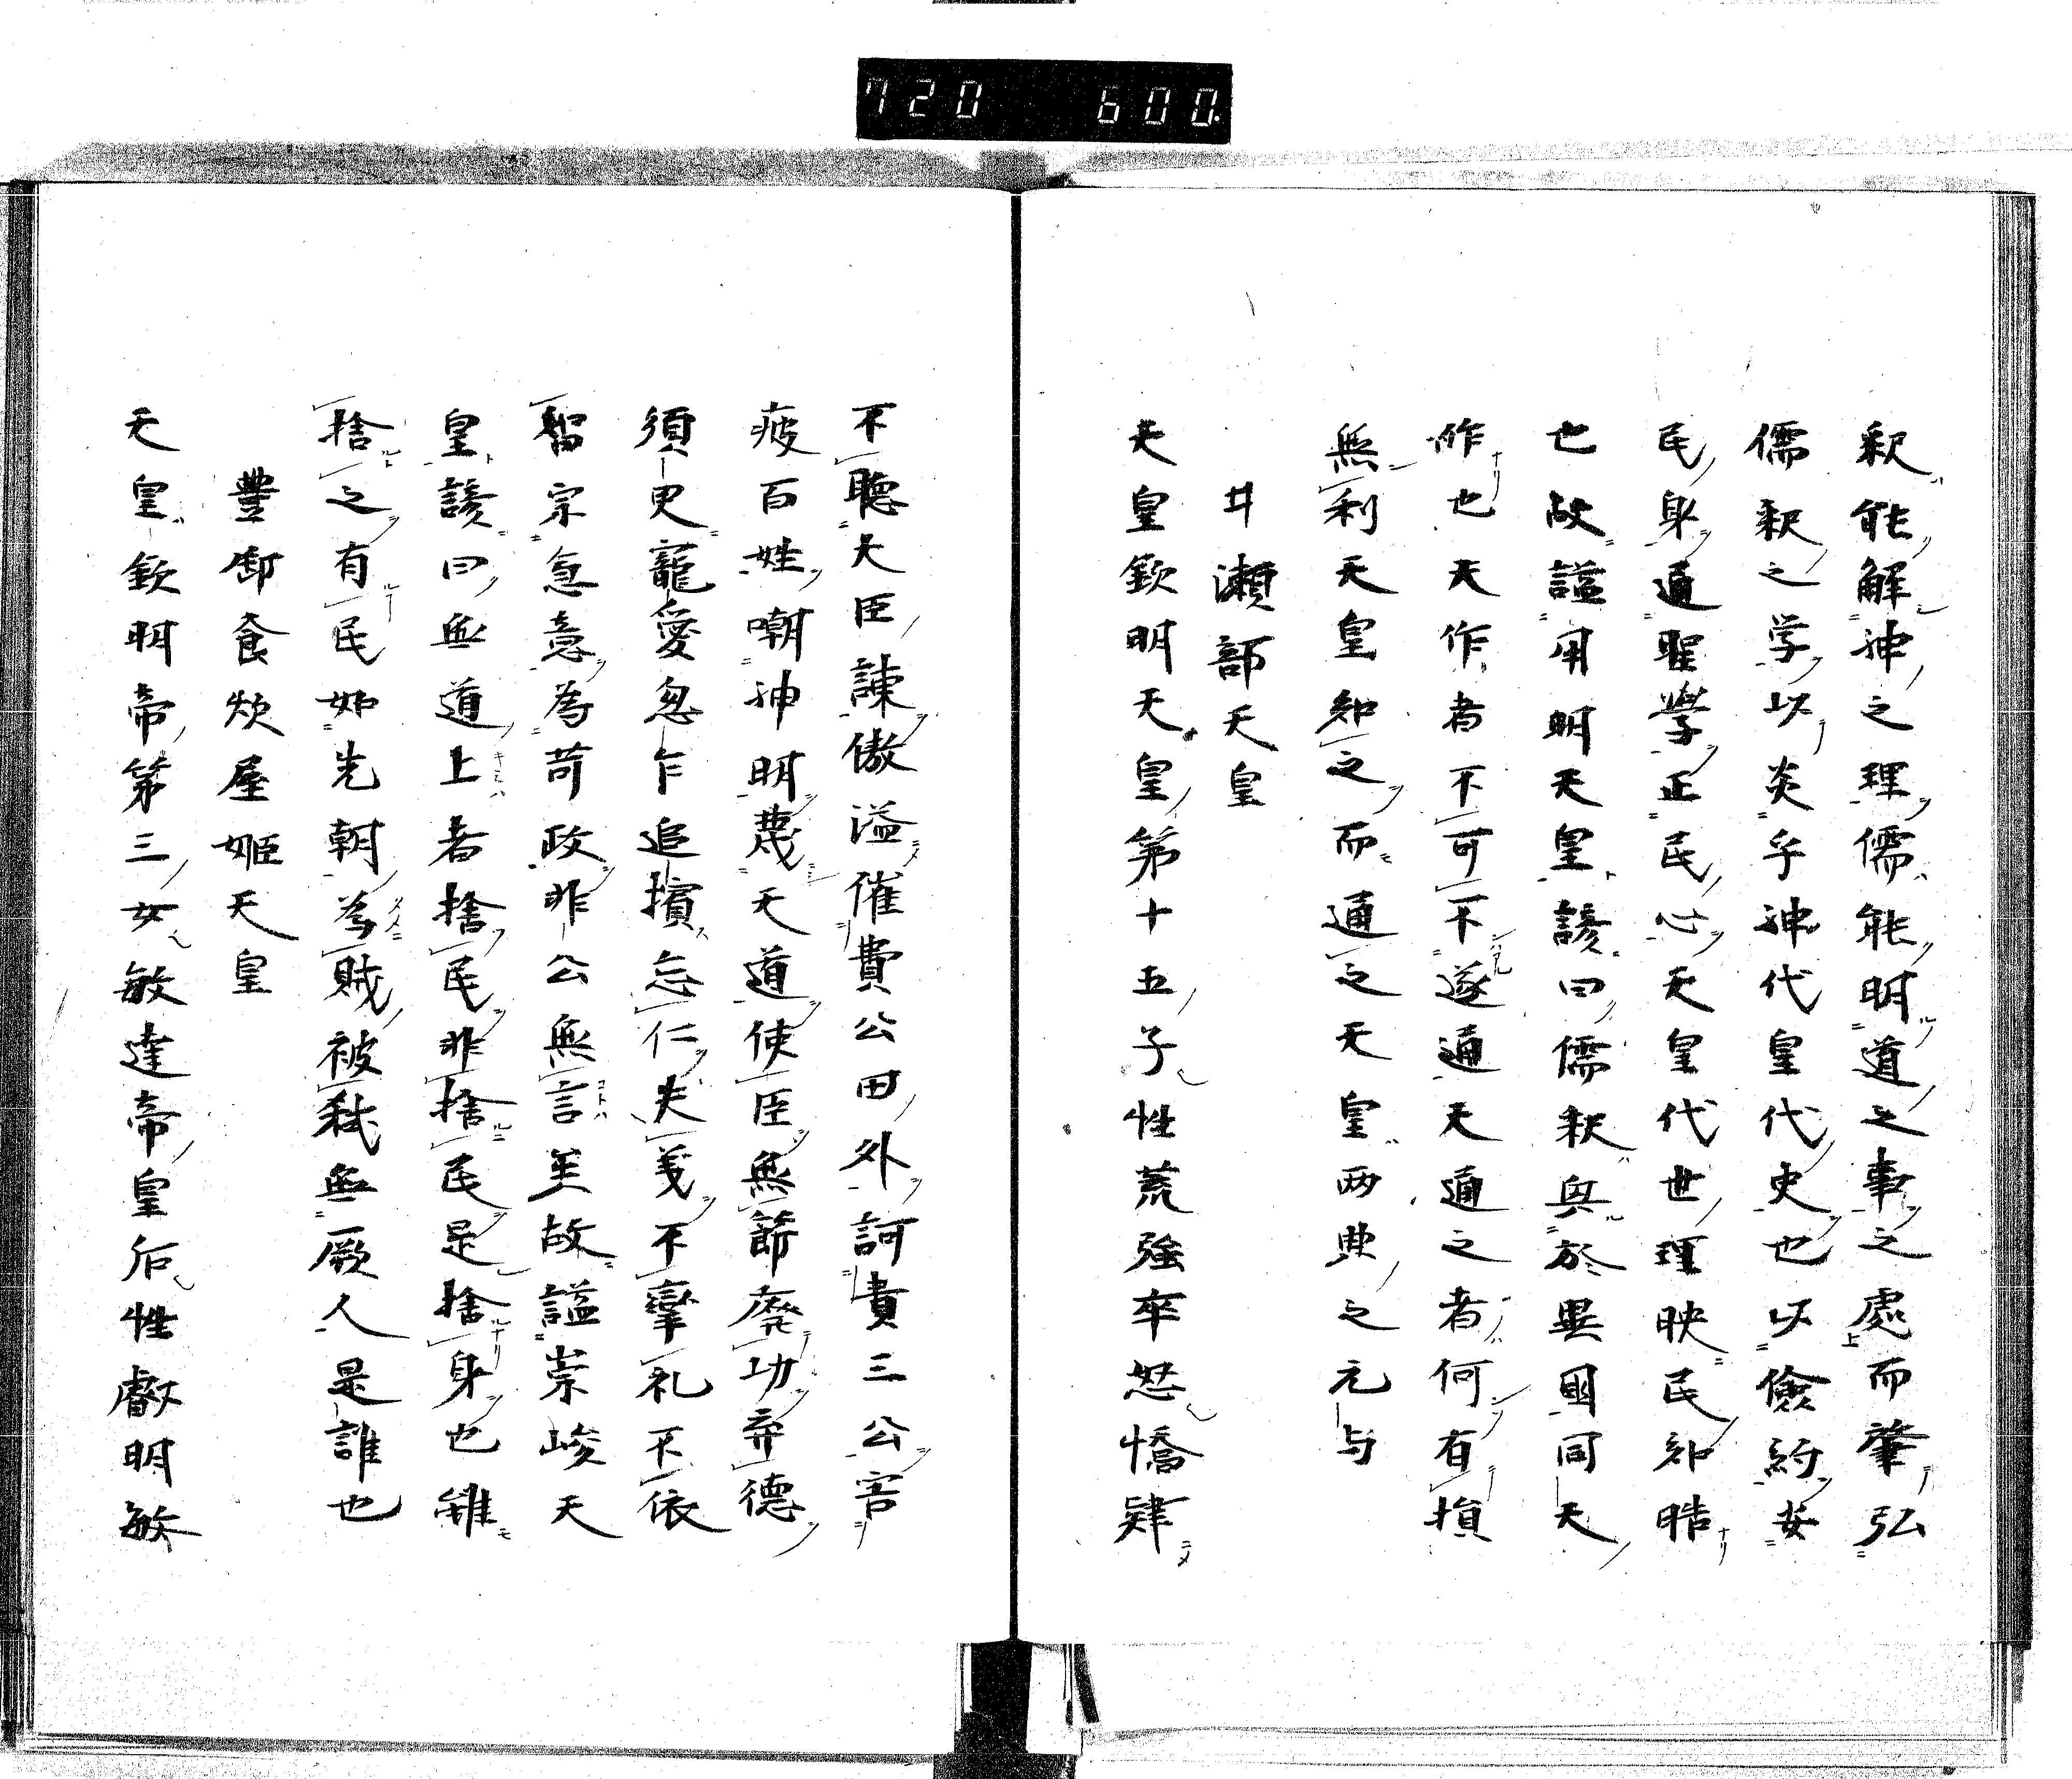 720 600.
釈能解神之理儒能明道之事之處而肇弘
儒釈之学以炎乎神代皇代史也以儉約安
民身通聖學正民心天皇代世理映民知晧
也故謚用明天皇諺曰儒釈興於異國同天
作也天作者不可不遂通天通之者何有損
無利天皇知之而通之天皇両典之元与
丼瀬部天皇
天皇欽明天皇第十五子性荒強卒怒憍肆
不聴大臣諌傲溢催費公田外訶責三公害
疲百姓嘲神明蔑天道使臣無節廃功弃德
須臾寵愛忽乍追擯忘仁失義不牽礼不依
智宗急意為苛政非公無言美故謚崇峻天
皇諺曰無道上者捨民非捨民是捨身也雖
捨之有民如先朝為賊被弑無厥人是誰也
豐御食炊屋姬天皇
天皇欽明帝第三女敏達帝皇后性叡明敏